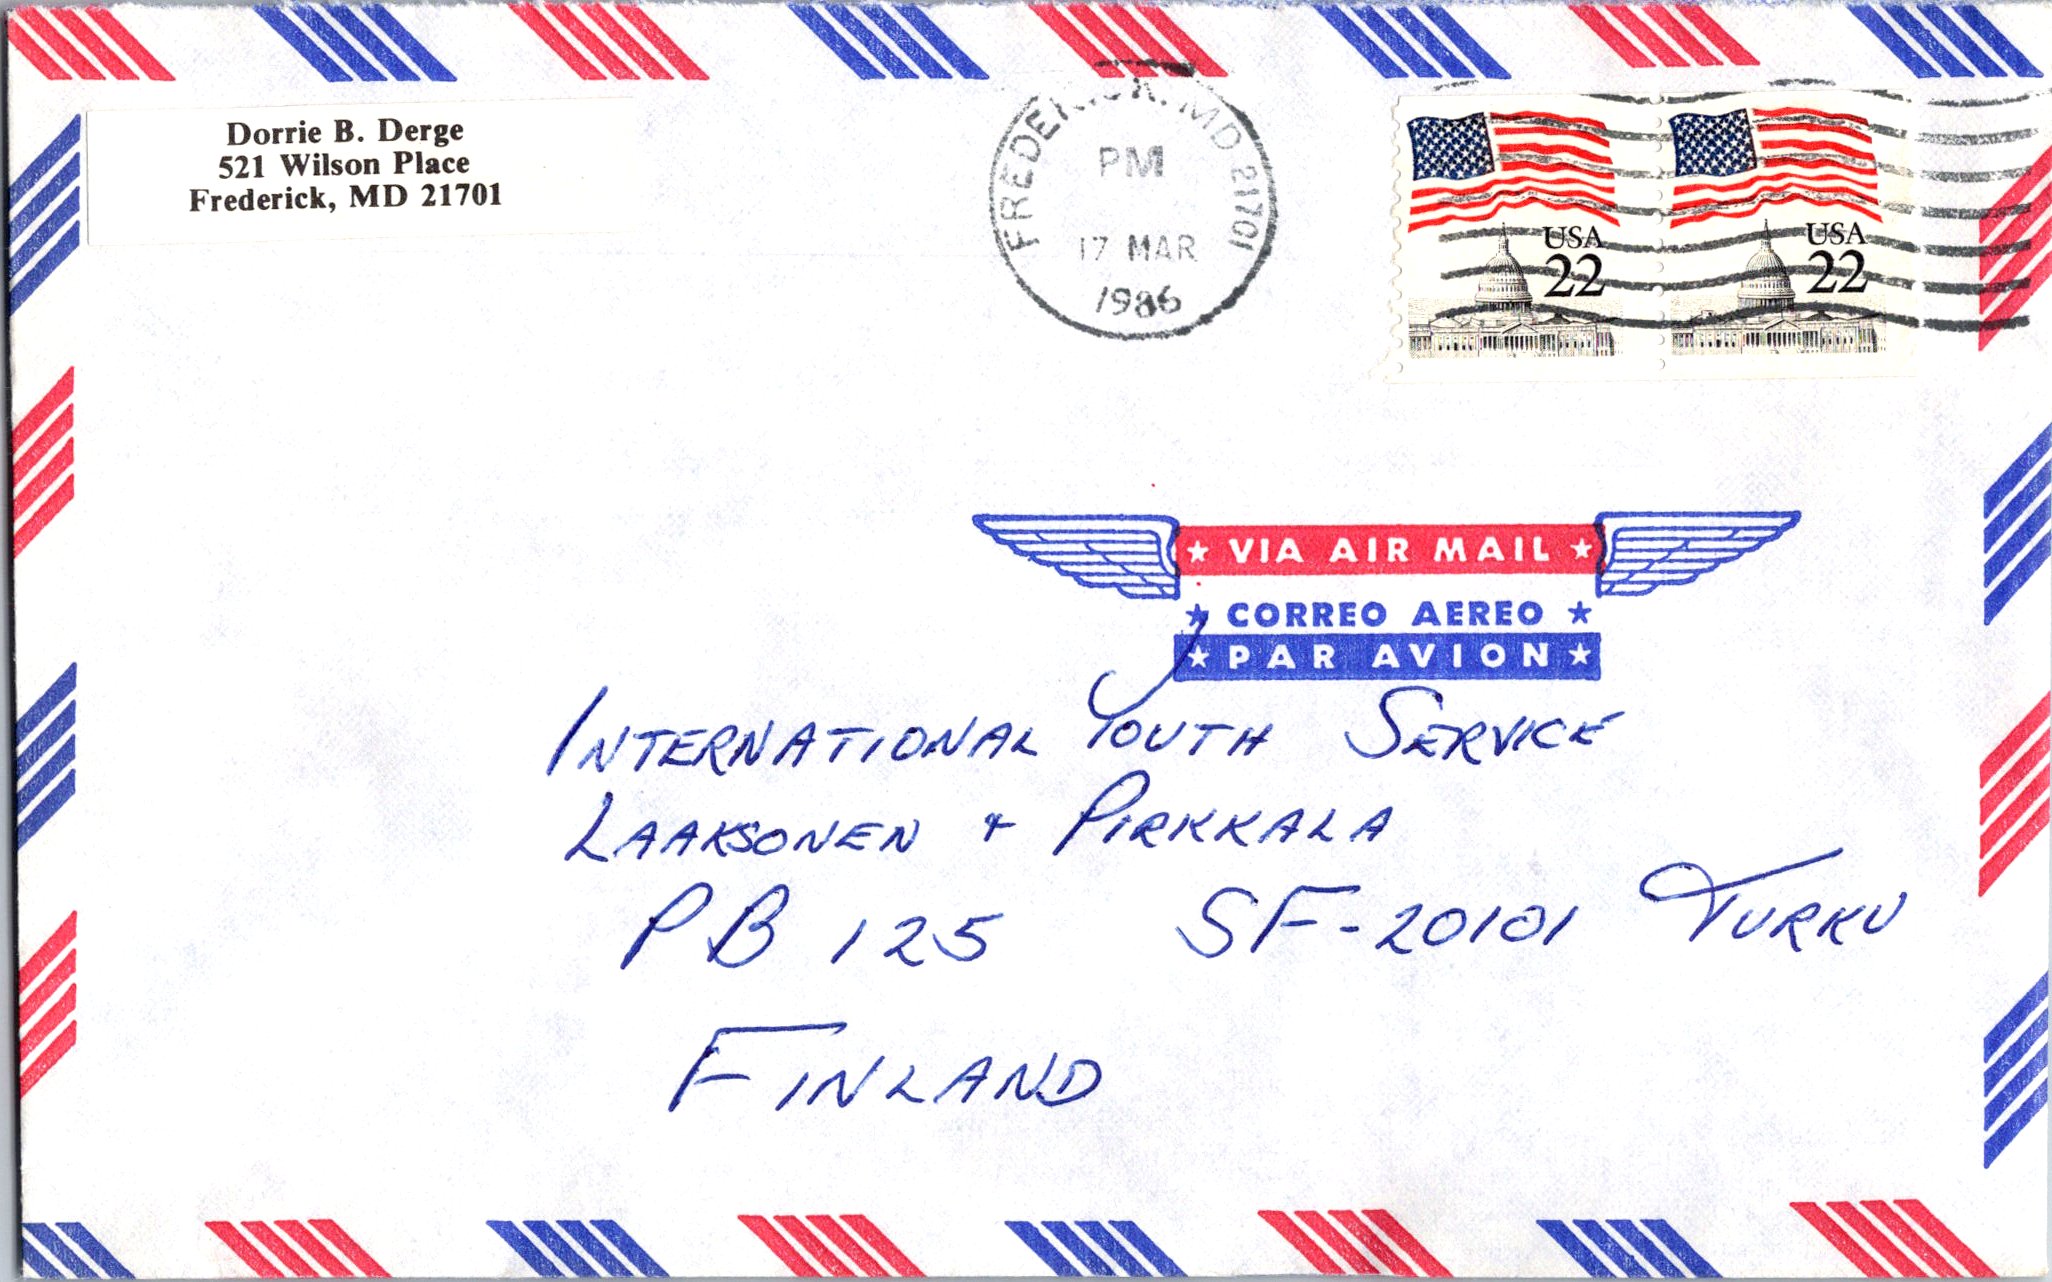 Dorrie B. Derge
521 Wilson Place
Frederick, MD 21701
FREDERICK, MD 21701
PM
17 MAR
1986
USA
22
USA
22
★ VIA AIR MAIL ★
★ CORREO AEREO ★
★ PAR AVION ★
INTERNATIONAL YOUTH SERVICE
LAAKSONEN & PIRKKALA
PB 125 SF-20101 TURKU
FINLAND